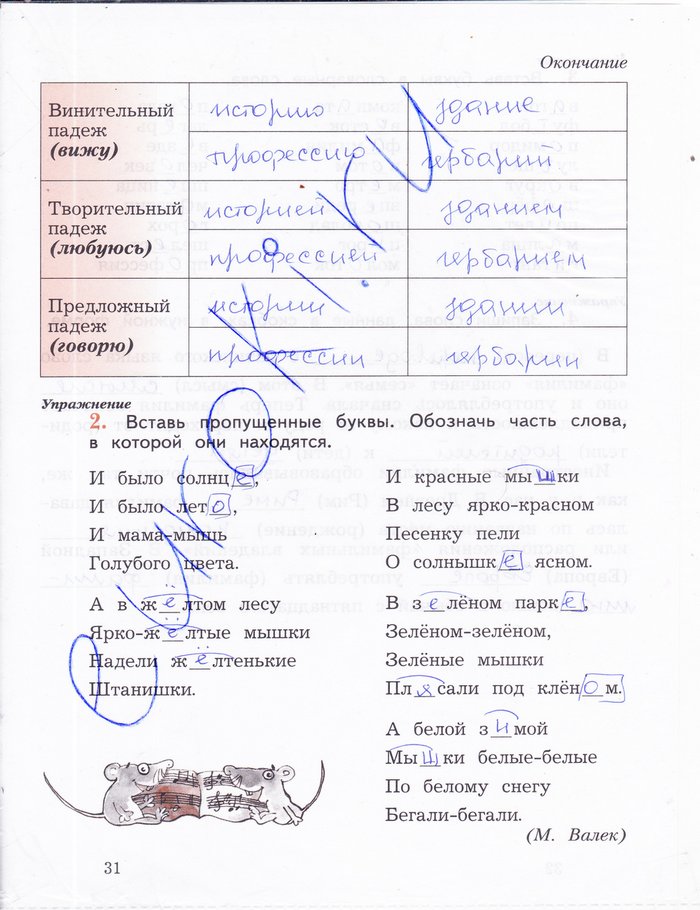 Окончание
Винительный падеж (вижу) историю здание
профессию гербарий
Творительный падеж (любуюсь) историей зданием
профессией гербарием
Предложный падеж (говорю) истории здании
профессии гербарии
Упражнение
2. Вставь пропущенные буквы. Обозначь часть слова,
в которой они находятся.
И было солнце,
И было лето,
И мама-мышь
Голубого цвета.
А в жёлтом лесу
Ярко-жёлтые мышки
Надели жёлтенькие
Штанишки.
И красные мышки
В лесу ярко-красном
Песенку пели
О солнышке ясном.
В зелёном парке,
Зелёном-зелёном,
Зелёные мышки
Плясали под клёном.
А белой зимой
Мышки белые-белые
По белому снегу
Бегали-бегали.
(М. Валек)
31